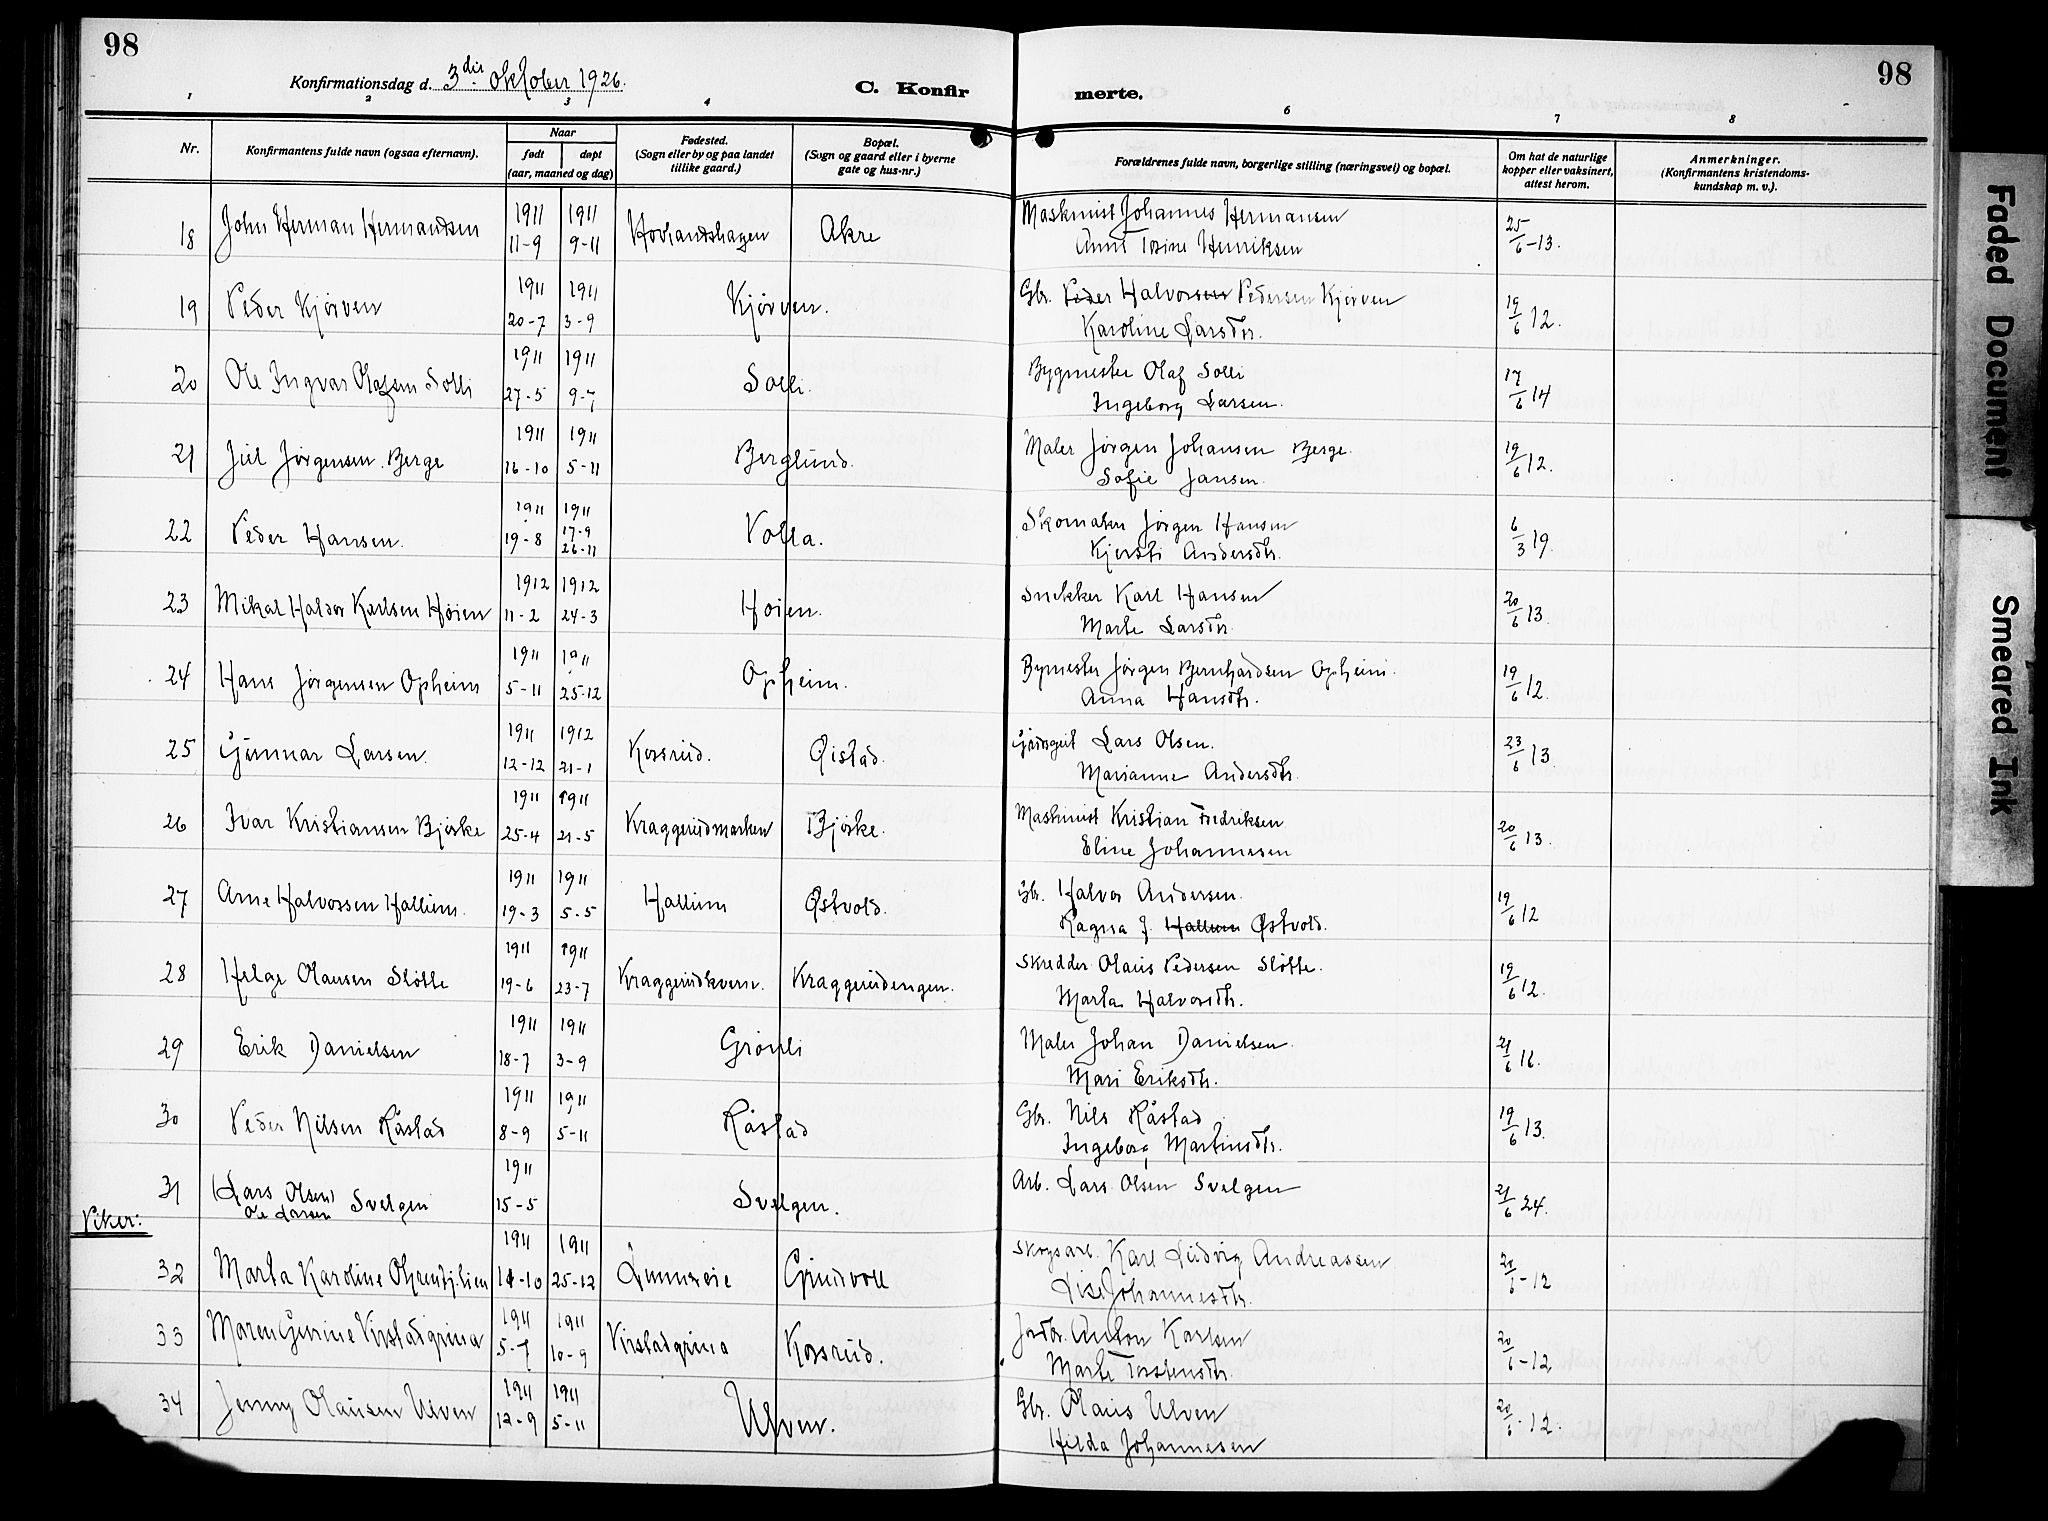 98
98
Konfirmationsdag d. 3die oktober 1926.
C. Konfir merte.
1 2 3 4 6 7 8
Nr.
Konfirmantens fulde navn (ogsaa efternavn).
Naar
født døpt
(aar, maaned og dag)
Fødested.
(Sogn eller by og paa landet
tillike gaard.)
Bopæl.
(Sogn og gaard eller i byerne
gate og hus-nr.)
Forældrenes fulde navn, borgerlige stilling (næringsvei) og bopæl.
Om hat de naturlige
kopper eller vaksinert,
attest herom.
Anmerkninger.
(Konfirmantens kristendoms-
kundskap m. v.).
1911 1911 Maskinist Johannes Hermansen
18 John Herman Hermandsen 11-9 9-11 Hovlandshagen Akre 25/6-13.
Anne Tosine Henriksen
1911 1911 Gbr. Peder Halvorsen Pedersen Kjörven
19 Peder Kjörven 20-7 3-9 Kjörven. 19/6 12.
Karoline Larsdtr.
1911 1911 Bygmester Olaf Solli
20 Ole Ingvar Olafsen Solli 27-5 9-7 Solli. 17/6 14
Ingeborg Larsen.
1911 1911 Maler Jørgen Johansen Berge.
21 Juul Jørgensen Berge 16-10 5-11 Berglund. 19/6 12.
Sofie Jansen.
1911 1911 Skomaker Jørgen Hansen
22 Peder Hansen. 19-8 17-9 Volla. 6/3 19.
26-11 Kjersti Andersdtr.
1912 1912 Snekker Karl Hansen
23 Mikal Haldor Karlsen Høien 11-2 24-3 Høien. 20/6 13.
Marte Larsdtr.
1911 1911 Bymester Jørgen Bernhardsen Opheim.
24 Hans Jørgensen Opheim 5-11 25-12 Opheim. 19/6 12.
Anna Hansdtr.
1911 1912 Lars Olsen.
25 Gunnar Larsen. 12-12 21-1 Kossrud. Øistad. 23/6 13.
Marianne Andersdtr.
1911 1911 Maskinist Kristian Fredriksen
26 Ivar Kristiansen Bjørke 25-4 21-5 Kraggerudmarken Bjørke. 20/6 13.
Eline Johannesen
1911 1911 Gbr. Halvor Andersen.
27 Arne Halvorsen Hallum. 19-3 5-5 Hallum Østvold. 19/6 12
Ragna J. Hallum Østvold.
1911 1911 Skredder Olaus Pedersen Slötte.
28 Helge Olausen Slötte 19-6 23-7 Kraggerudkvern. Kraggerudengen. 19/6 12.
Marta Halvorsdtr.
1911 1911 Maler Johan Danielsen.
29 Erik Danielsen 18-7 3-9 Grönli 21/6 16.
Mari Eriksdtr.
1911 1911 Gbr. Nils Råstad
30 Peder Nilsen Råstad 8-9 5-11 Råstad 19/6 13.
Ingeborg Martinsdtr.
1911 Arb. Lars Olsen Svelgen
31 (Lars Olsen) Svelgen 15-5 Svelgen. 21/6 24.
Ole Larsen
Piker:
1911 1911 Skogsarb. Karl Ludvig Andreassen
32 Marta Karoline 14-10 25-12 Grudvoll 21/6-12
Lise Johannesdtr.
1911 1911 Anton Karlsen
33 Maren Gurine Virstadgrina 5-7 10-9 Virstadgrina Kossrud. 20/6-12
Marte Torstensdtr.
1911 1911 Gbr. Olaus Ulven
34 Jenny Olausen Ulven 12-9 5-11 Ulven. 20/6-12.
Hilda Johannesen
Faded Document
Smeared Ink